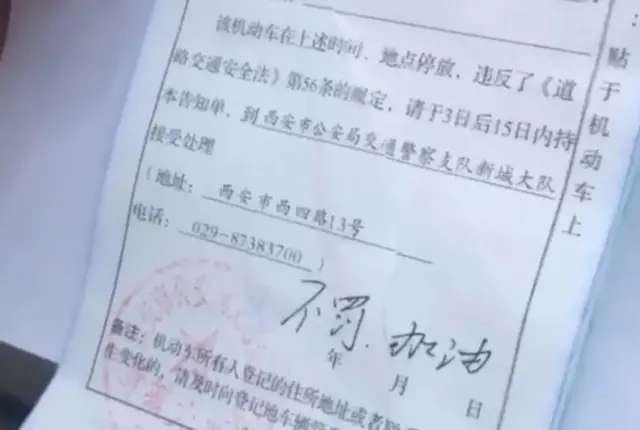 该机动车在上述时间、地点停放，违反了《道
路交通安全法》第56条的规定，请于3日后15日内持
本告知单，到西安市公安局交通警察支队新城大队
接受处理
（地址：西安市西四路13号
电话：029-87383700）
不罚.加油
年 月 日
备注：机动车所有人登记的住所地址或者联
生变化的，请及时向登记地车辆管
贴于机动车上